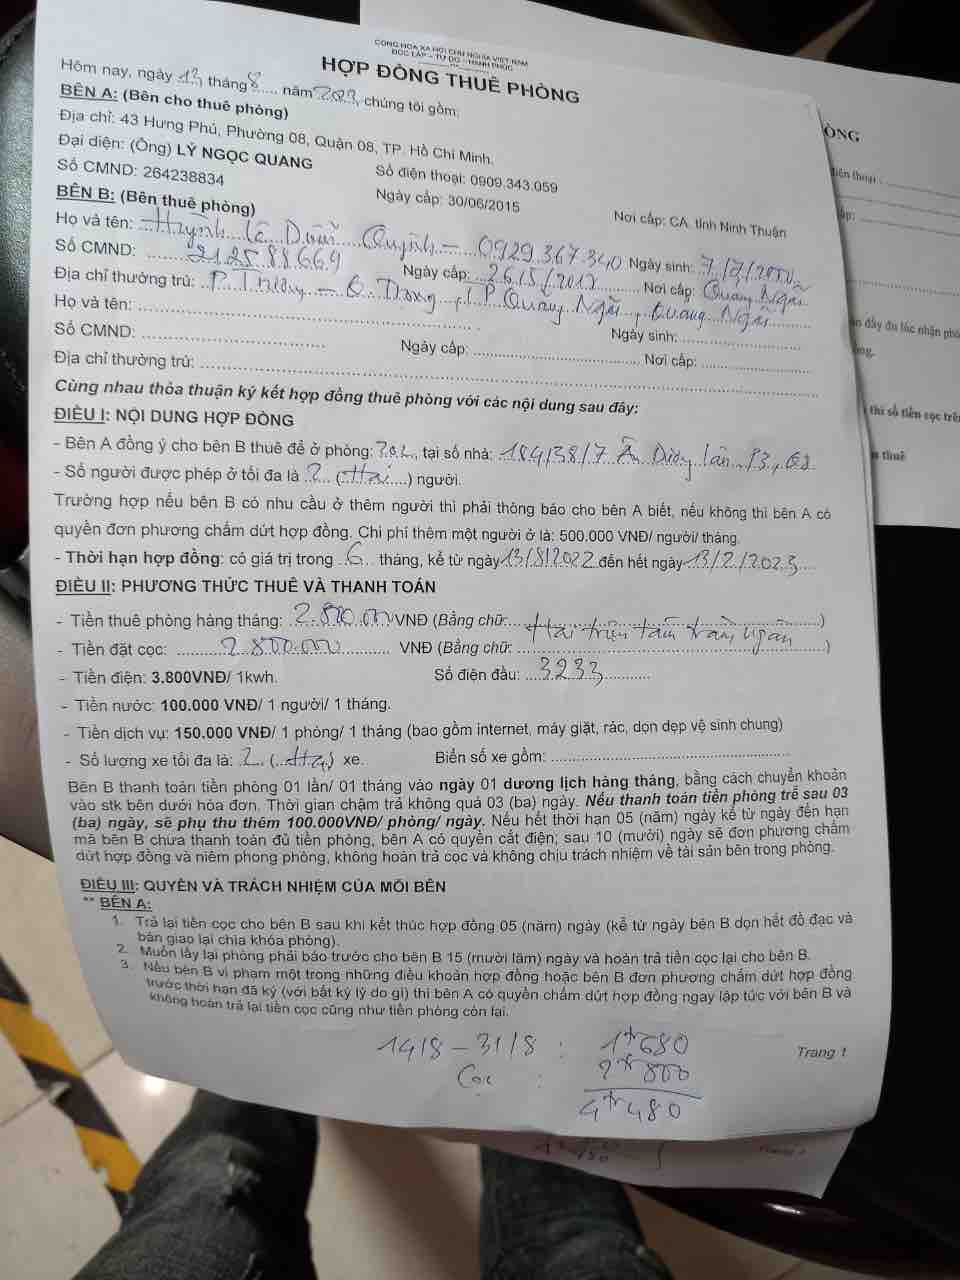 CỘNG HÒA XÃ HỘI CHỦ NGHĨA VIỆT NAM
ĐỘC LẬP - TỰ DO - HẠNH PHÚC
HỢP ĐỒNG THUÊ PHÒNG
Hôm nay, ngày 13 tháng 8 năm chúng tôi gồm:
BÊN A: (Bên cho thuê phòng)
Địa chỉ: 43 Hưng Phú, Phường 08, Quận 08, TP. Hồ Chí Minh.
Đại diện: (Ông) LÝ NGỌC QUANG Số điện thoại: 0909.343.059
Số CMND: 264238834 Ngày cấp: 30/06/2015 Nơi cấp: CA. tỉnh Ninh Thuận
BÊN B: (Bên thuê phòng)
Họ và tên: Huỳnh Lê Duẫn Quỳnh - 0929.367.340 Ngày sinh: 7/7/2000
Số CMND: 212588669 Ngày cấp: 26/5/2017 Nơi cấp: Quảng Ngãi
Địa chỉ thường trú: P. Trương - Q. Trọng, T.P. Quảng Ngãi, Quảng Ngãi
Họ và tên: Ngày sinh:
Số CMND: Ngày cấp: Nơi cấp:
Địa chỉ thường trú:
Cùng nhau thỏa thuận ký kết hợp đồng thuê phòng với các nội dung sau đây:
ĐIỀU I: NỘI DUNG HỢP ĐỒNG
- Bên A đồng ý cho bên B thuê để ở phòng: 302, tại số nhà: 184/38/7 Âu Dương Lân, P3, Q8
- Số người được phép ở tối đa là 2 (Hai) người.
Trường hợp nếu bên B có nhu cầu ở thêm người thì phải thông báo cho bên A biết, nếu không thì bên A có
quyền đơn phương chấm dứt hợp đồng. Chi phí thêm một người ở là: 500.000 VNĐ/ người/ tháng.
- Thời hạn hợp đồng: có giá trị trong 6 tháng, kể từ ngày 13/8/2022 đến hết ngày 13/2/2023
ĐIỀU II: PHƯƠNG THỨC THUÊ VÀ THANH TOÁN
- Tiền thuê phòng hàng tháng: 2.800.000 VNĐ (Bằng chữ: Hai triệu tám trăm ngàn)
- Tiền đặt cọc: 2.800.000 VNĐ (Bằng chữ: )
- Tiền điện: 3.800VNĐ/ 1kwh. Số điện đầu: 3233
- Tiền nước: 100.000 VNĐ/ 1 người/ 1 tháng.
- Tiền dịch vụ: 150.000 VNĐ/ 1 phòng/ 1 tháng (bao gồm internet, máy giặt, rác, dọn dẹp vệ sinh chung)
- Số lượng xe tối đa là: 2 (Hai) xe. Biển số xe gồm:
Bên B thanh toán tiền phòng 01 lần/ 01 tháng vào ngày 01 dương lịch hàng tháng, bằng cách chuyển khoản
vào stk bên dưới hóa đơn. Thời gian chậm trả không quá 03 (ba) ngày. Nếu thanh toán tiền phòng trễ sau 03
(ba) ngày, sẽ phụ thu thêm 100.000VNĐ/ phòng/ ngày. Nếu hết thời hạn 05 (năm) ngày kể từ ngày đến hạn
mà bên B chưa thanh toán đủ tiền phòng, bên A có quyền cắt điện; sau 10 (mười) ngày sẽ đơn phương chấm
dứt hợp đồng và niêm phong phòng, không hoàn trả cọc và không chịu trách nhiệm về tài sản bên trong phòng.
ĐIỀU III: QUYỀN VÀ TRÁCH NHIỆM CỦA MỖI BÊN
** BÊN A:
1. Trả lại tiền cọc cho bên B sau khi kết thúc hợp đồng 05 (năm) ngày (kể từ ngày bên B dọn hết đồ đạc và
bàn giao lại chìa khóa phòng).
2. Muốn lấy lại phòng phải báo trước cho bên B 15 (mười lăm) ngày và hoàn trả tiền cọc lại cho bên B.
3. Nếu bên B vi phạm một trong những điều khoản hợp đồng hoặc bên B đơn phương chấm dứt hợp đồng
trước thời hạn đã ký (với bất kỳ lý do gì) thì bên A có quyền chấm dứt hợp đồng ngay lập tức với bên B và
không hoàn trả lại tiền cọc cũng như tiền phòng còn lại.
14/8 - 31/8 : 1tr680
Cọc : 2tr800
4tr480
Trang 1
ÒNG
điện thoại :
ấp:
ận đầy đủ lúc nhận phò
òng.
thì số tiền cọc trên
n thuê